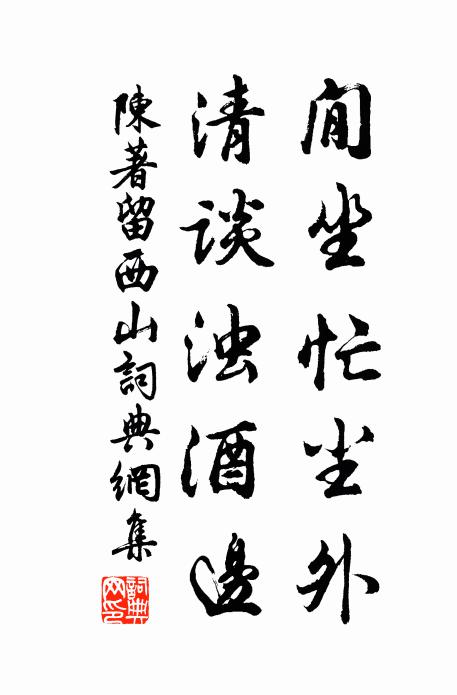 閒坐忙尘外
清談浊酒邊
陳著留西山詞典網集
詞典网印